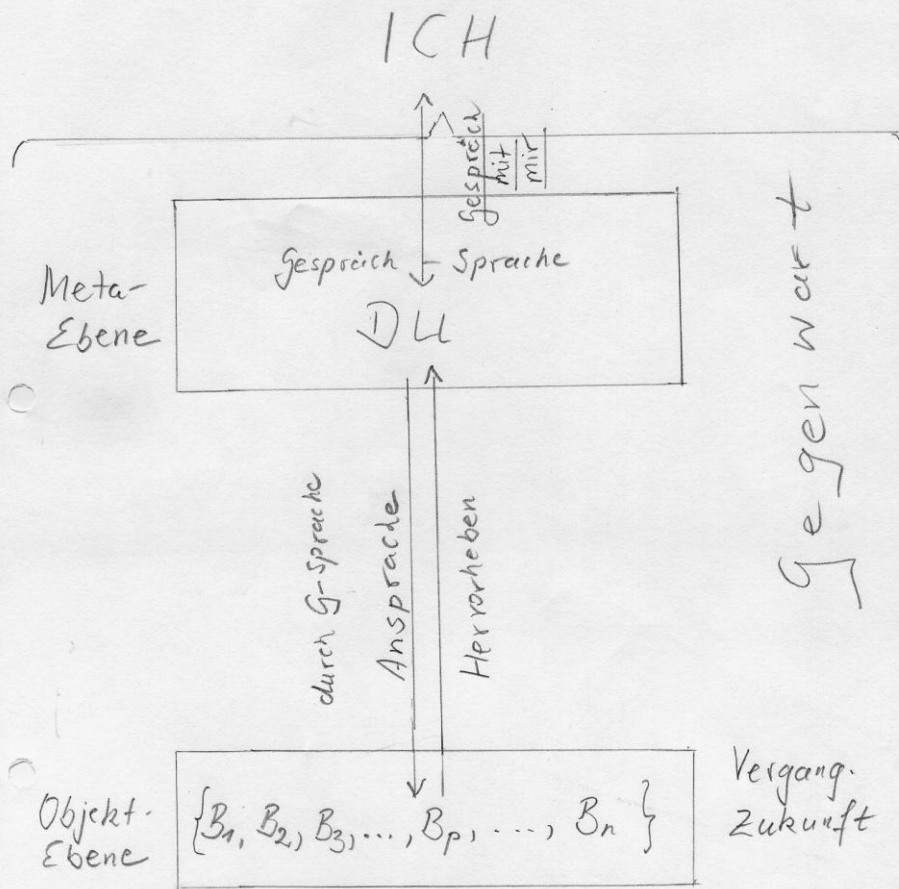 ICH
Gespräch
mit
mir
Gespräch - Sprache
DU
Meta-
Ebene
Gegenwart
durch G-Sprache
Ansprache
Hervorheben
Objekt-
Ebene
{B₁, B₂, B₃, ..., Bₚ, ..., Bₙ}
Vergang.
Zukunft